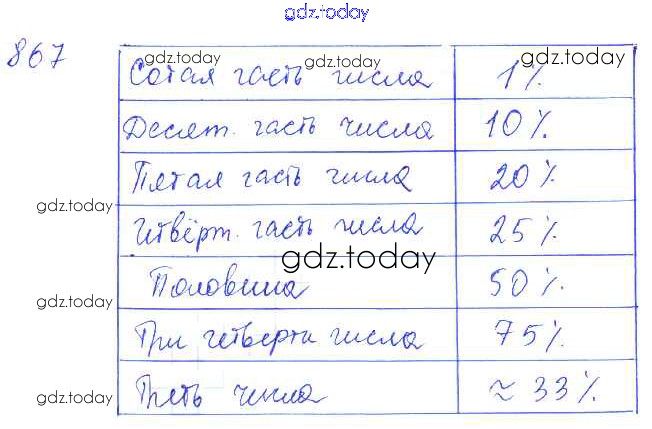 gdz.today
867
gdz.today
gdz.today
Сотая часть числа 1%
Десят. часть числа 10%
Пятая часть числа 20%
gdz.today
Четвёрт. часть числа 25%
gdz.today
Половина 50%
gdz.today
Три четверти числа 75%
Треть числа ≈ 33%
gdz.today